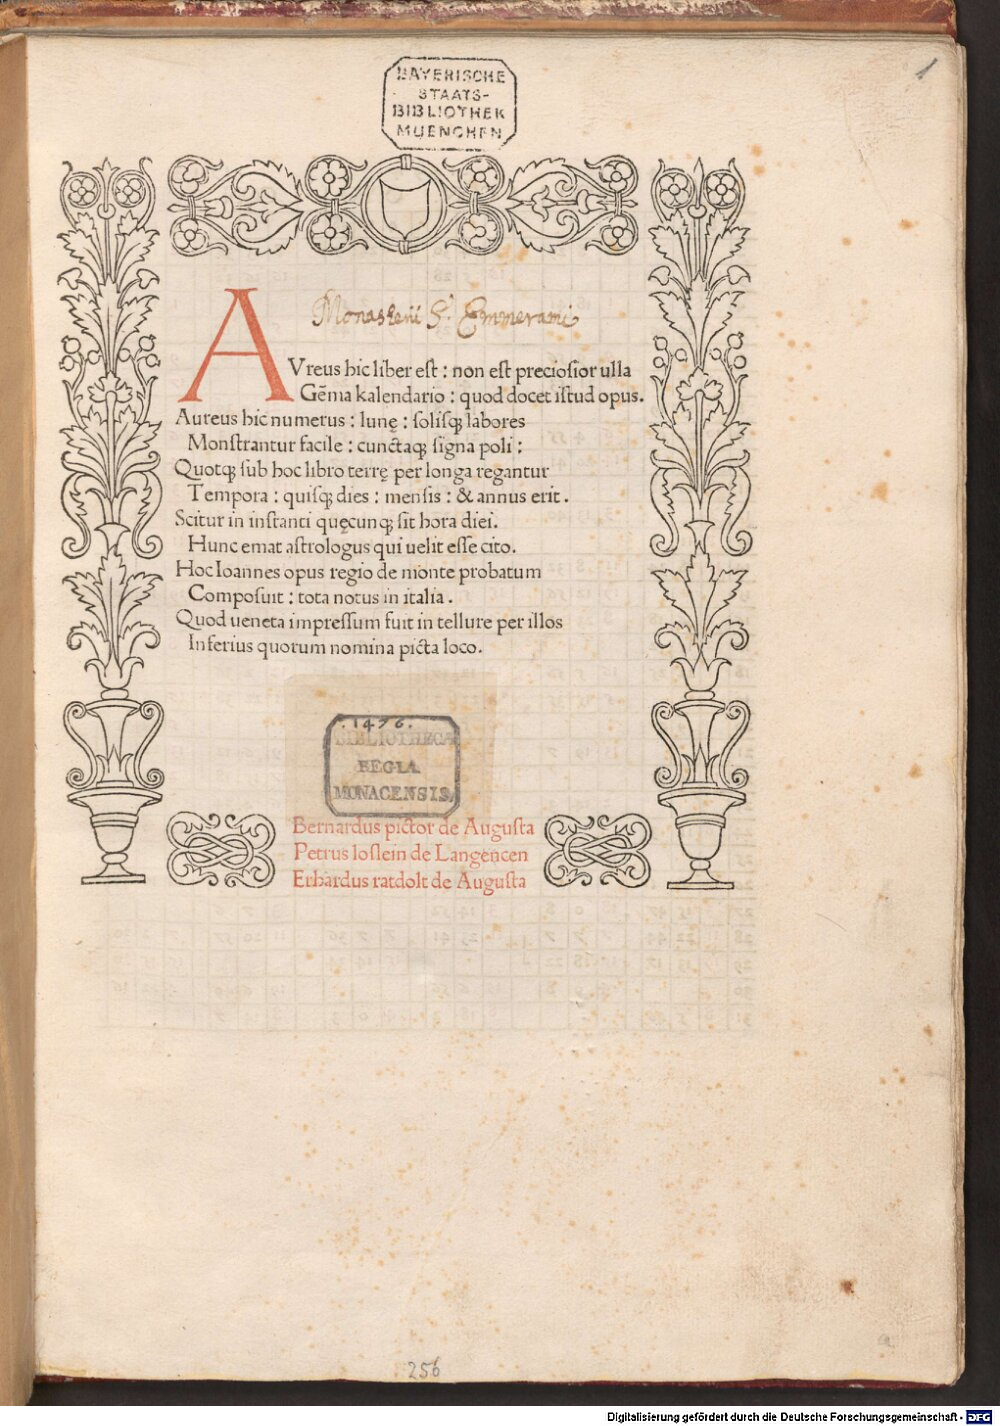 1
BAYERISCHE
STAATS-
BIBLIOTHEK
MUENCHEN
Monasterii S. Emmerami
AVreus hic liber est : non est preciosior ulla
Gẽma kalendario : quod docet istud opus.
Aureus hic numerus : lunę : solisq; labores
Monstrantur facile : cunctaq; signa poli :
Quotq; sub hoc libro terrę per longa regantur
Tempora : quisq; dies : mensis : & annus erit.
Scitur in instanti quęcunq; sit hora diei.
Hunc emat astrologus qui uelit esse cito.
Hoc Ioannes opus regio de monte probatum
Composuit : tota notus in italia.
Quod ueneta impressum fuit in tellure per illos
Inferius quorum nomina picta loco.
.1476.
BIBLIOTHECA
REGIA
MONACENSIS
Bernardus pictor de Augusta
Petrus loslein de Langencen
Erhardus ratdolt de Augusta
256
Digitalisierung gefördert durch die Deutsche Forschungsgemeinschaft - DFG